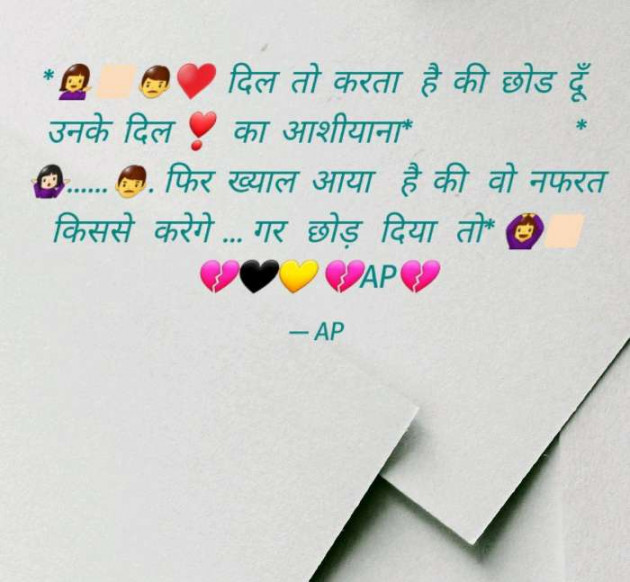 *💁🏻👨❤️ दिल तो करता है की छोड दूँ
उनके दिल ❣️ का आशीयाना* *
🤷🏻‍♀️......👨. फिर ख्याल आया है की वो नफरत
किससे करेगे ... गर छोड़ दिया तो* 🙆🏻
💔🖤💛 💔AP💔
— AP